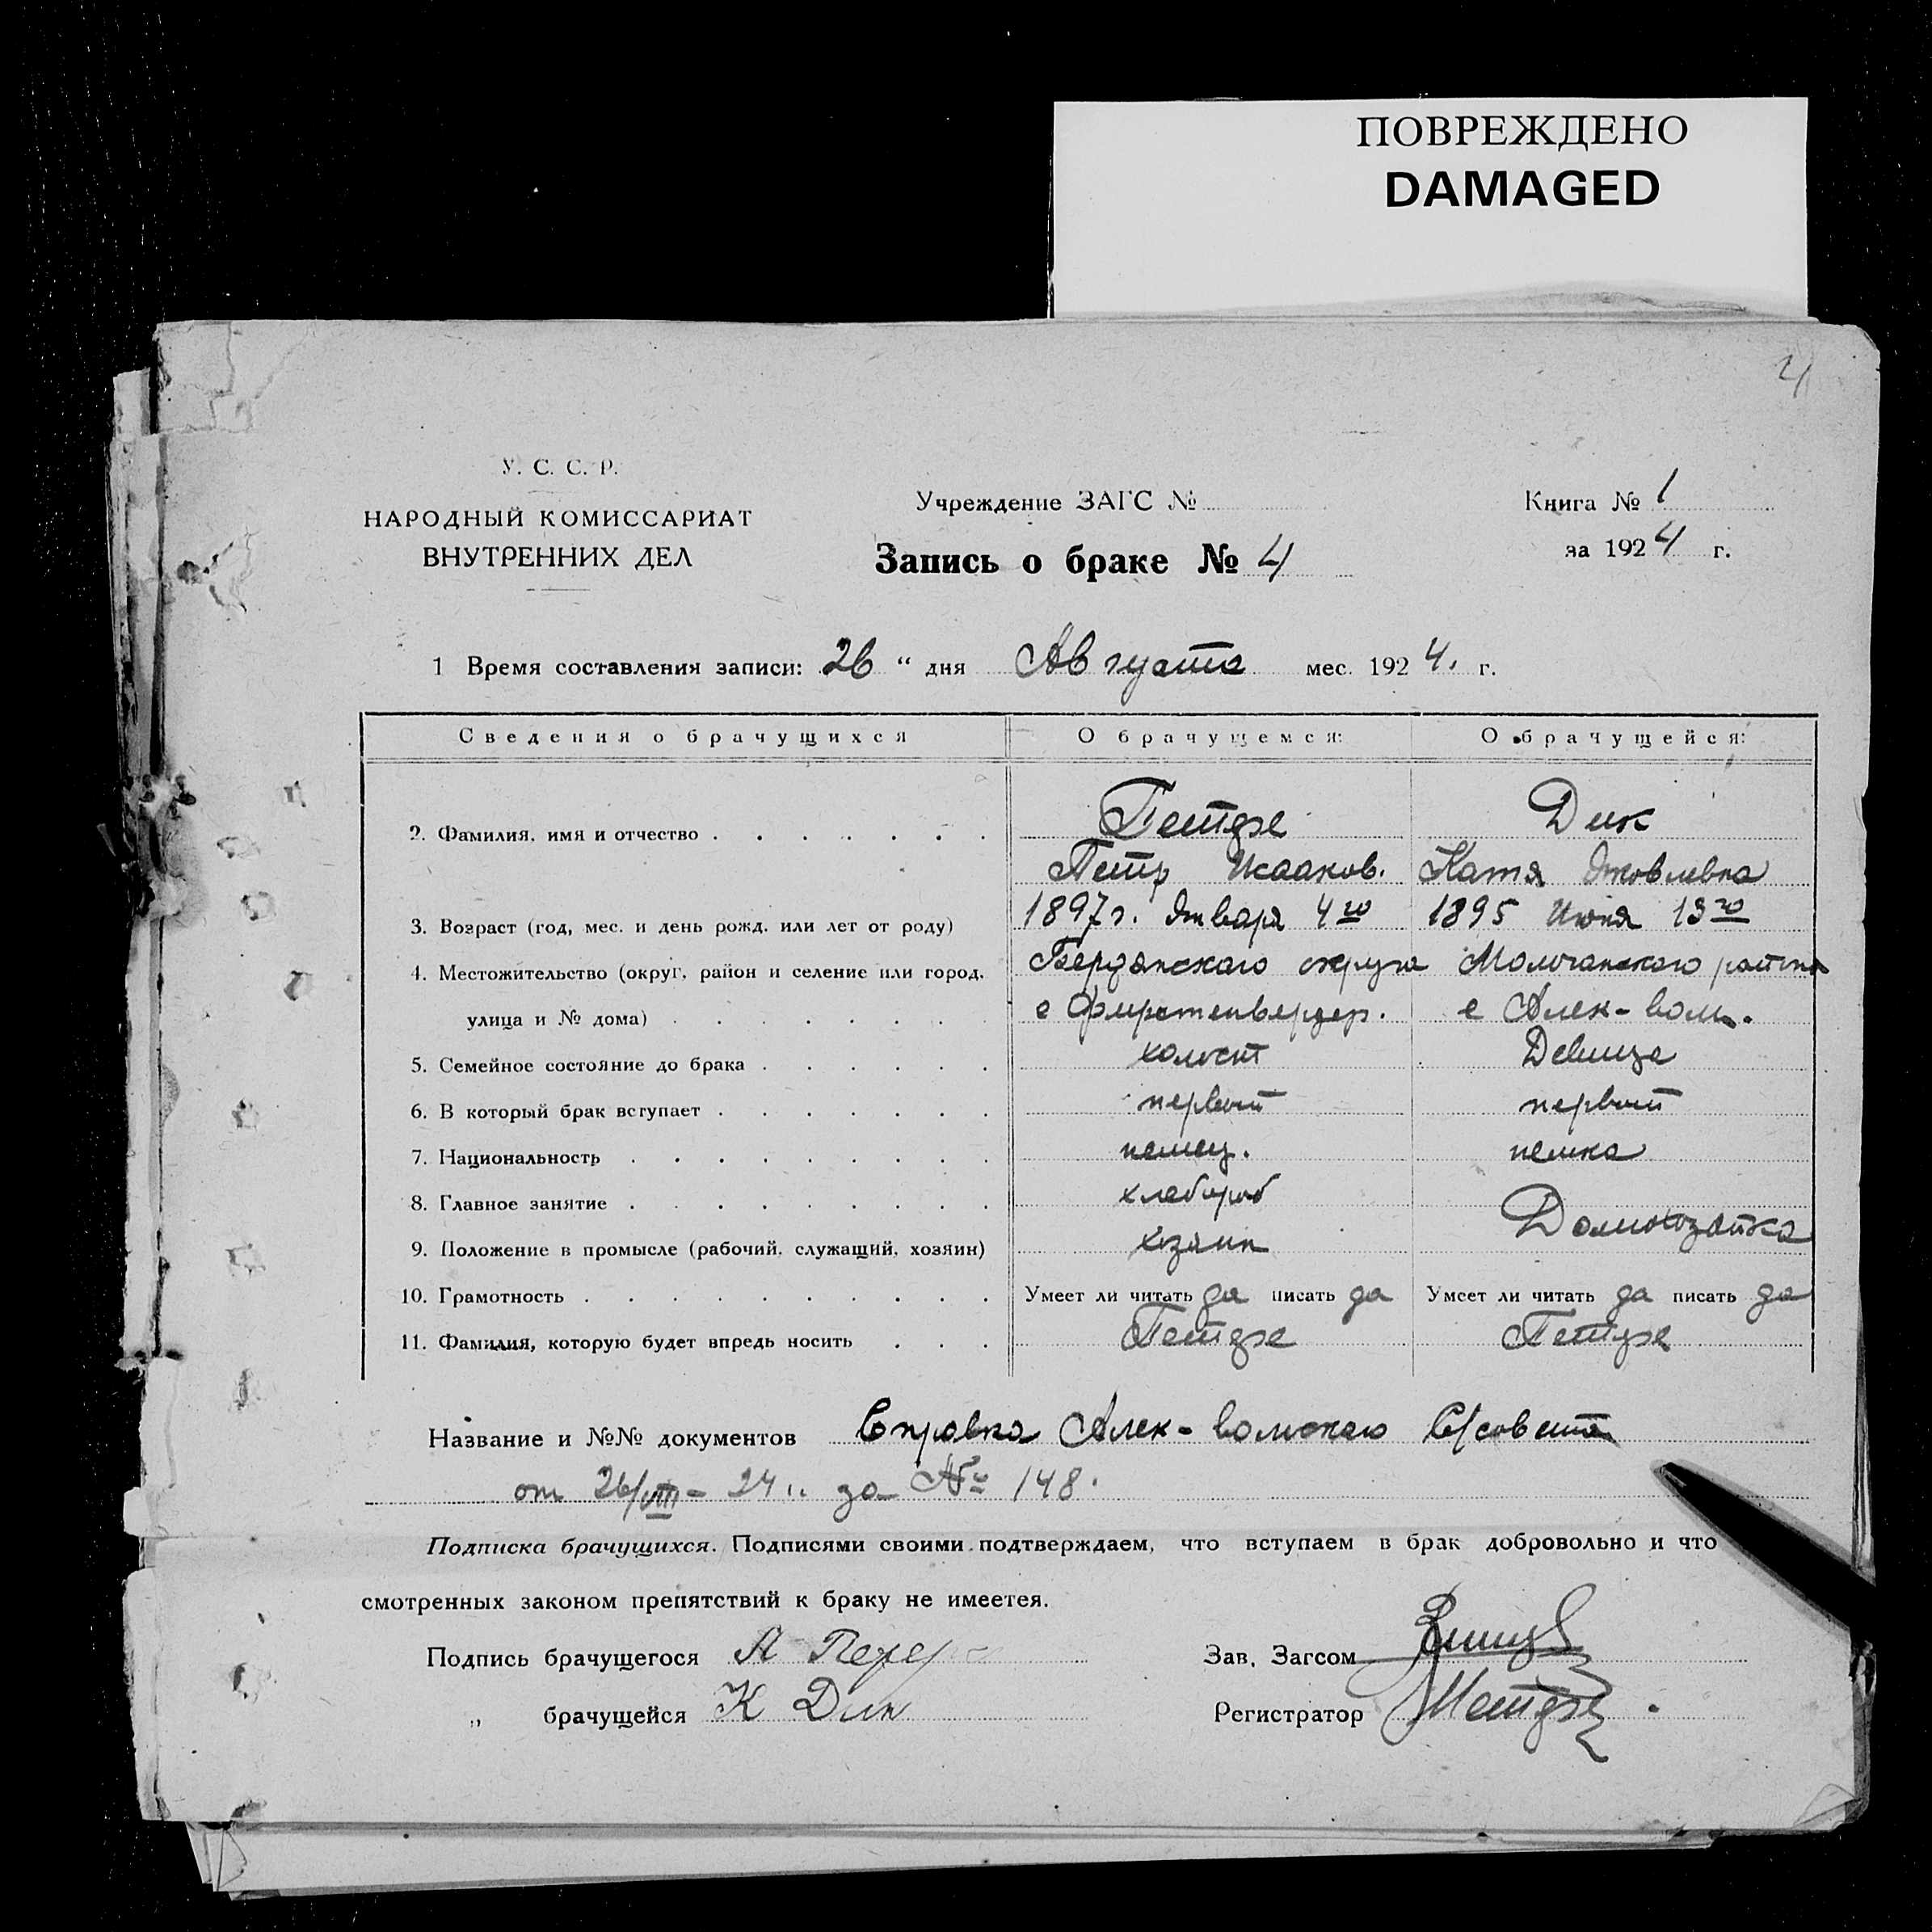 ПОВРЕЖДЕНО
DAMAGED
4
У. С. С. Р.
НАРОДНЫЙ КОМИССАРИАТ
ВНУТРЕННИХ ДЕЛ
Учреждение ЗАГС №
Запись о браке № 4
Книга № 1
за 1924 г.
1 Время составления записи: 26 " дня Августа мес. 1924. г.
Сведения о брачущихся О брачущемся: О брачущейся:
2. Фамилия, имя и отчество Петкре Дик
Петр Исааков. Катя Яковлевна
3. Возраст (год, мес. и день рожд. или лет от роду) 1897г. Января 4го 1895 Июня 13го
4. Местожительство (округ, район и селение или город, Бердянскаго округа Молочанскаго района
улица и № дома) с Фирстенвердер. с Алек-волм.
5. Семейное состояние до брака холост Девица
6. В который брак вступает первый первый
7. Национальность немец. немка
8. Главное занятие хлебороб Домохозяйка
9. Положение в промысле (рабочий, служащий, хозяин) хозяин
10. Грамотность Умеет ли читать да писать да Умеет ли читать да писать да
11. Фамилия, которую будет впредь носить
Название и №№ документов Справка Алек-вольскаго С/совета
от 26/VIII - 24 " за № 148.
Подписка брачущихся. Подписями своими подтверждаем, что вступаем в брак добровольно и что
смотренных законом препятствий к браку не имеется.
Подпись брачущегося
Зав. Загсом
" брачущейся К Дик
Регистратор